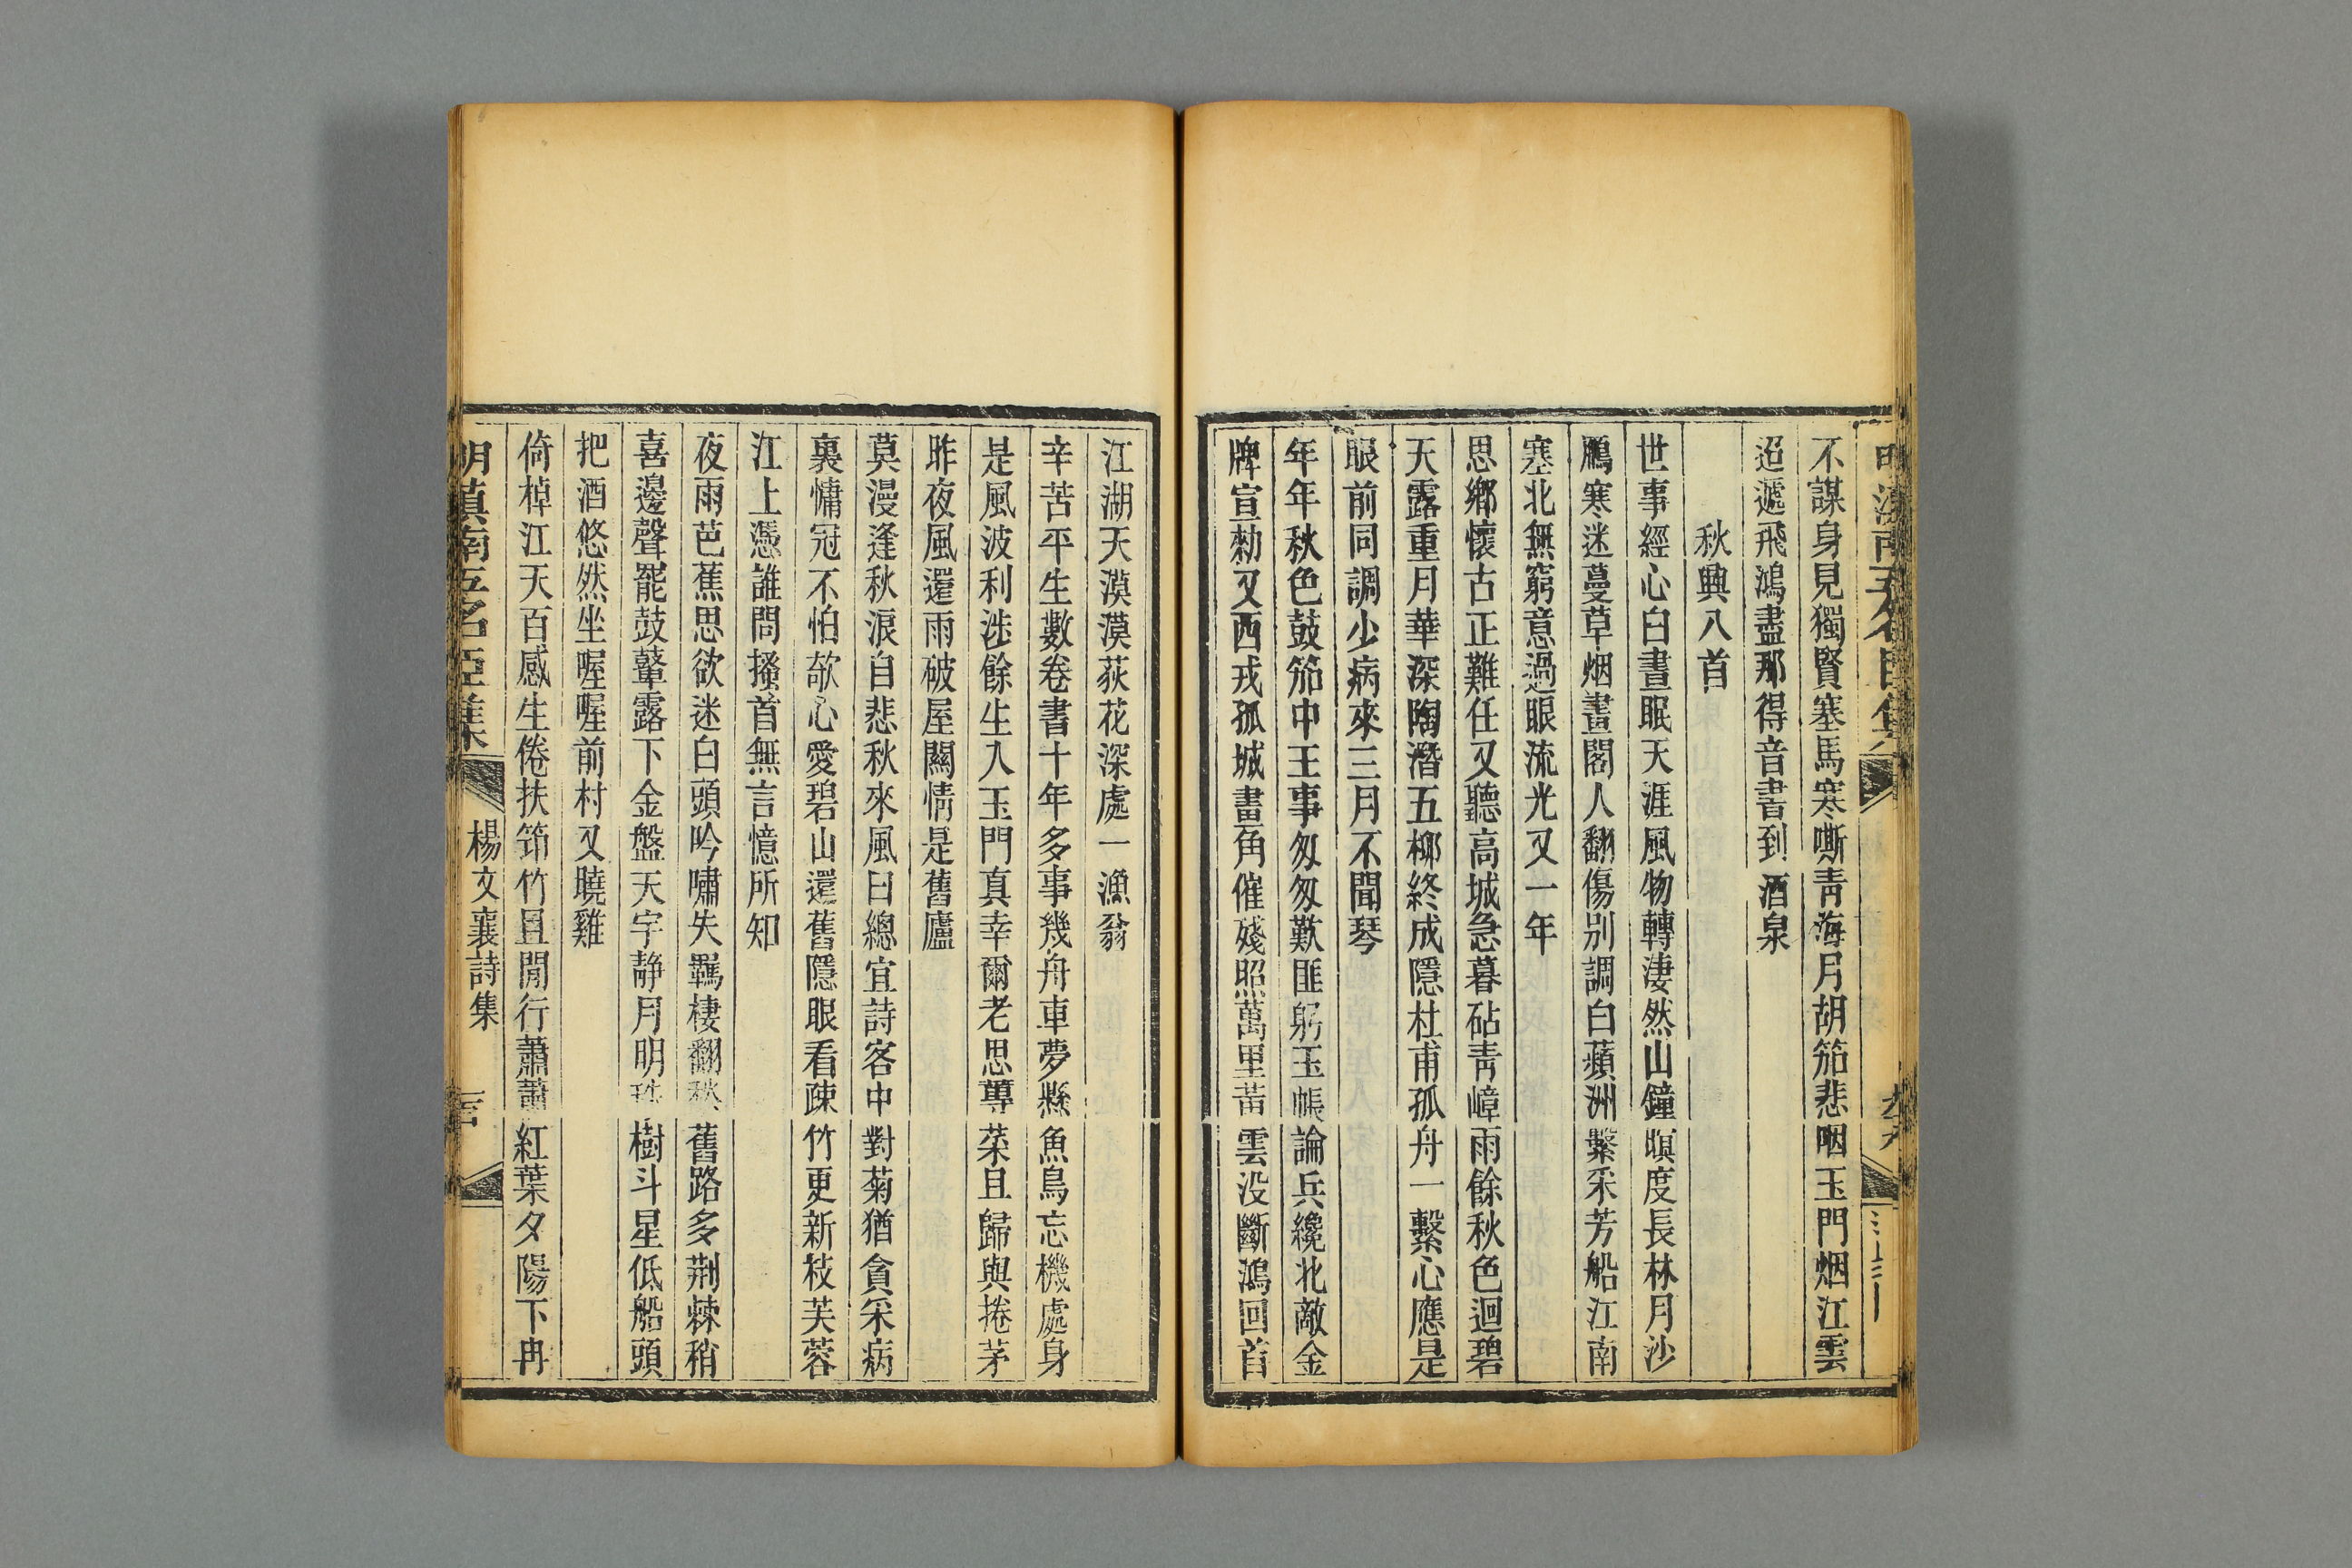 不謀身見獨賢塞馬寒嘶青海月胡笳悲咽玉門烟江雲
迢遞飛鴻盡那得音書到酒泉
秋興八首
世事經心白晝眠天涯風物轉淒然山鐘暝度長林月沙
鴈寒迷蔓草烟畫閣人翻傷別調白蘋洲繫采芳船江南
塞北無窮意過眼流光又一年
思鄉懷古正難任又聽高城急暮砧青嶂雨餘秋色迴碧
天露重月華深陶潛五柳終成隱杜甫孤舟一繫心應是
眼前同調少病來三月不聞琴
年年秋色鼓笳中王事匆匆歎匪躬玉帳論兵纔北敵金
牌宣勑又西戎孤城畫角催殘照萬里黃雲沒斷鴻回首
江湖天漠漠荻花深處一漁翁
辛苦平生數卷書十年多事幾舟車夢縣魚鳥忘機處身
是風波利涉餘生入玉門真幸爾老思蓴菜且歸與捲茅
昨夜風還雨破屋關情是舊廬
莫漫逢秋浪自悲秋來風日總宜詩客中對菊猶貪采病
裏慵冠不怕欹心愛碧山還舊隱眼看疎竹更新枝芙蓉
江上憑誰問搔首無言憶所知
夜雨芭蕉思欲迷白頭吟嘯失羈棲翻愁舊路多荆棘稍
喜邊聲罷鼓鼙露下金盤天宇靜月明珠樹斗星低船頭
把酒悠然坐喔喔前村又曉雞
倚棹江天百感生倦扶笻竹且閒行蕭蕭紅葉夕陽下冉
明滇南五名臣集
楊文襄詩集